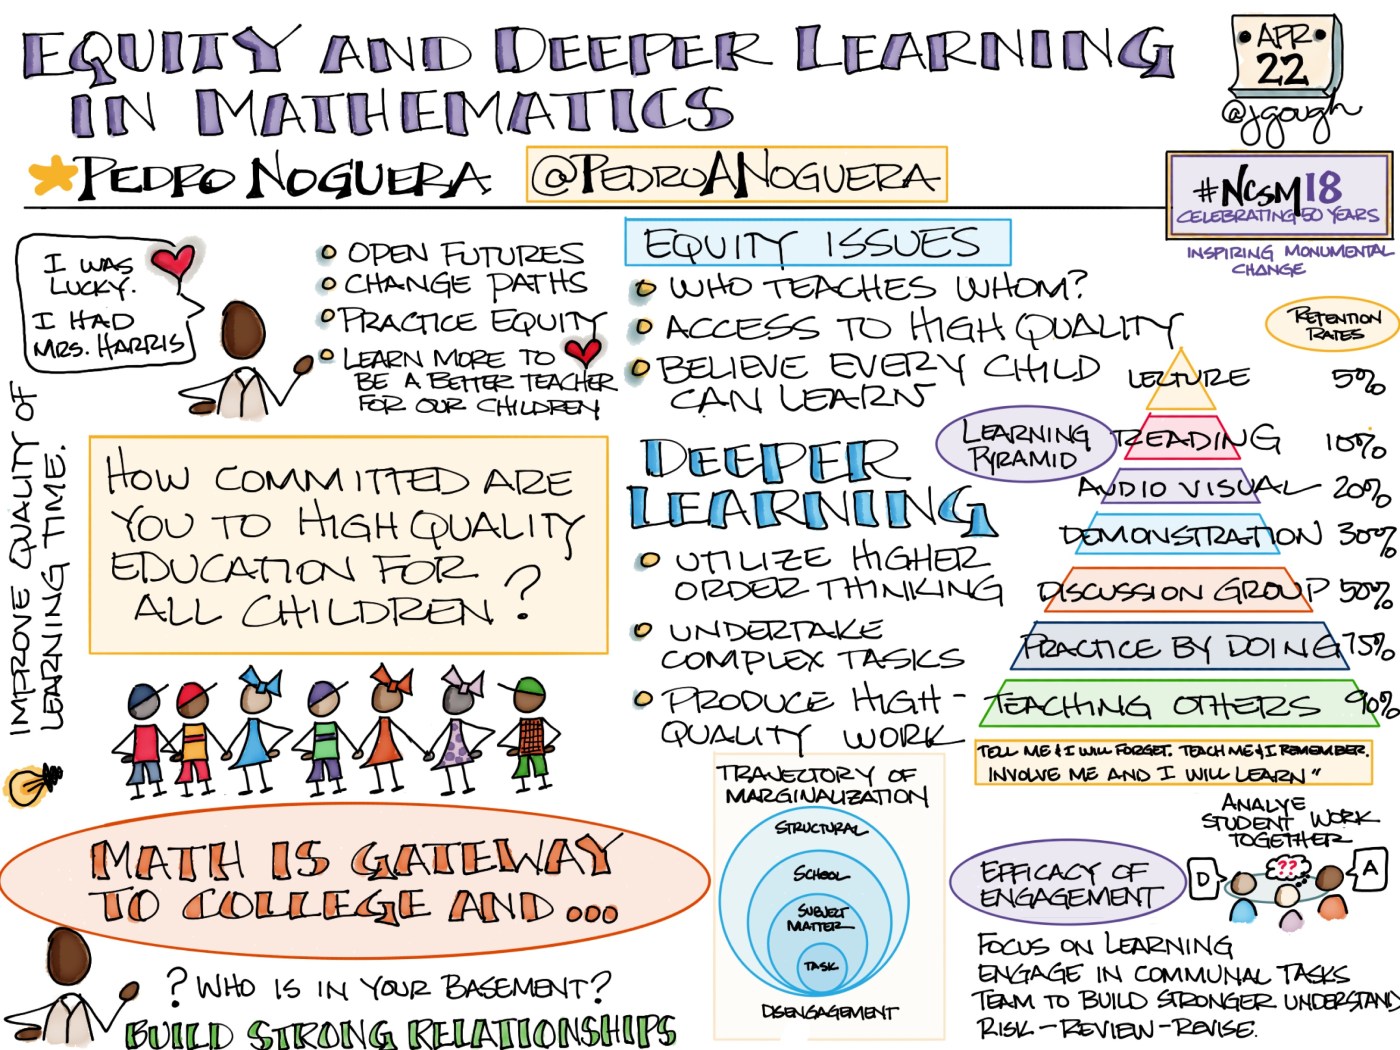 EQUITY AND DEEPER LEARNING
IN MATHEMATICS
APR
22
@jgough
PEDRO NOGUERA
@PEDROANOGUERA
#NCSM18
CELEBRATING 50 YEARS
INSPIRING MONUMENTAL
CHANGE
I WAS
LUCKY.
I HAD
MRS. HARRIS
OPEN FUTURES
CHANGE PATHS
PRACTICE EQUITY
LEARN MORE TO
BE A BETTER TEACHER
FOR OUR CHILDREN
IMPROVE QUALITY OF
LEARNING TIME.
HOW COMMITTED ARE
YOU TO HIGH QUALITY
EDUCATION FOR
ALL CHILDREN?
MATH IS GATEWAY
TO COLLEGE AND ...
? WHO IS IN YOUR BASEMENT?
BUILD STRONG RELATIONSHIPS
EQUITY ISSUES
WHO TEACHES WHOM?
ACCESS TO HIGH QUALITY
BELIEVE EVERY CHILD
CAN LEARN
DEEPER
LEARNING
UTILIZE HIGHER
ORDER THINKING
UNDERTAKE
COMPLEX TASKS
PRODUCE HIGH-
QUALITY WORK
TRAJECTORY OF
MARGINALIZATION
STRUCTURAL
SCHOOL
SUBJECT
MATTER
TASK
DISENGAGEMENT
RETENTION
RATES
LEARNING
PYRAMID
LECTURE 5%
READING 10%
AUDIO VISUAL 20%
DEMONSTRATION 30%
DISCUSSION GROUP 50%
PRACTICE BY DOING 75%
TEACHING OTHERS 90%
TELL ME & I WILL FORGET. TEACH ME & I REMEMBER.
INVOLVE ME AND I WILL LEARN"
ANALYE
STUDENT WORK
TOGETHER
D
??
A
EFFICACY OF
ENGAGEMENT
FOCUS ON LEARNING
ENGAGE IN COMMUNAL TASKS
TEAM TO BUILD STRONGER UNDERSTAND
RISK-REVIEW-REVISE.